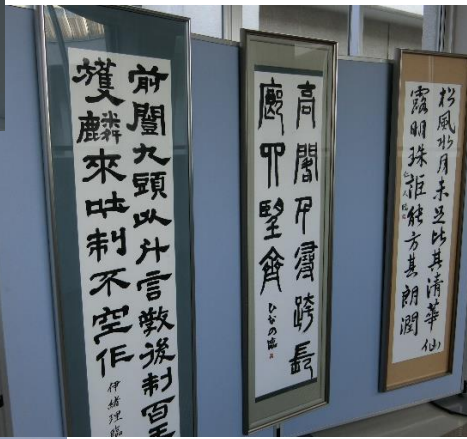 前闓九頭以什言教後制百王
獲麟來吐制不空作
伊緒理臨
高閣千尋跨長
廊四望齊
ひなの臨
松風水月未足比其清華仙
露明珠詎能方其朗潤